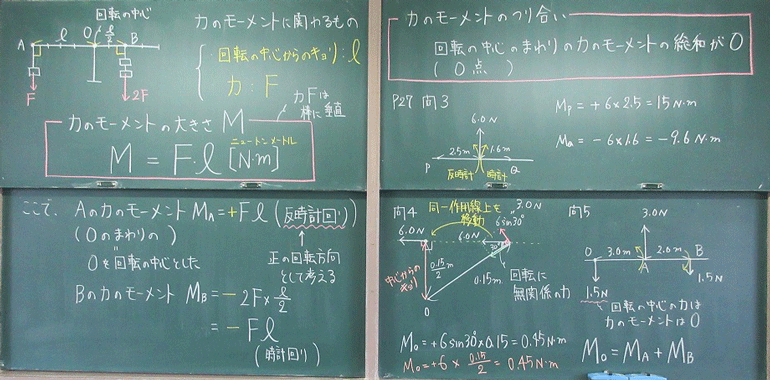 回転の中心
A ℓ O ℓ/2 B
F
2F
力のモーメントに関わるもの
回転の中心からのキョリ:ℓ
力:F
力Fは
棒に垂直
力のモーメントの大きさ M
ニュートンメートル
M = F·ℓ [N·m]
ここで、Aの力のモーメント MA=+Fℓ(反時計回り)
(Oのまわりの)
Oを回転の中心とした
正の回転方向
として考える
Bの力のモーメント MB=-2F×ℓ/2
=-Fℓ
(時計回り)
力のモーメントのつり合い
回転の中心のまわりの力のモーメントの総和が0
(O点)
P27 問3
6.0N
2.5m 1.6m
P Q
反時計 時計
Mp=+6×2.5=15N·m
MQ=-6×1.6=-9.6N·m
問4
同一作用線上を
移動
3.0N
6sin30°
6.0N
6.0N
30°
中心からの
キョリ
0.15/2
0.15m
O
回転に
無関係の力
Mo=+6sin30°×0.15=0.45N·m
Mo=+6×0.15/2=0.45N·m
問5
3.0N
O 3.0m 2.0m B
A
1.5N
1.5N
回転の中心の力は
力のモーメントは0
Mo=MA+MB